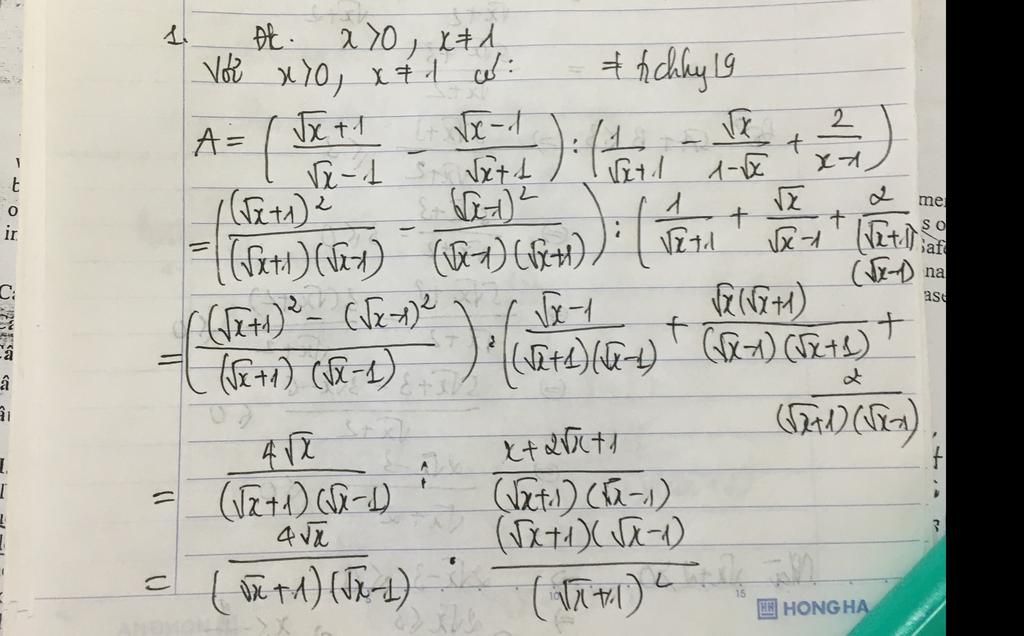 1. Đk. x>0, x≠1
Với x>0, x≠1 có: # hchhy19
A = ( (√x+1)/(√x-1) - (√x-1)/(√x+1) ) : ( 1/(√x+1) - √x/(1-√x) + 2/(x-1) )
= ( (√x+1)²/((√x+1)(√x-1)) - (√x-1)²/((√x-1)(√x+1)) ) : ( 1/(√x+1) + √x/(√x-1) + 2/((√x+1)(√x-1)
= ( ((√x+1)² - (√x-1)²)/((√x+1)(√x-1)) ) : ( (√x-1)/((√x+1)(√x-1)) + √x(√x+1)/((√x-1)(√x+1)) +
2/((√x+1)(√x-1))
= 4√x/((√x+1)(√x-1)) : (x+2√x+1)/((√x+1)(√x-1))
= 4√x/((√x+1)(√x-1)) . ((√x+1)(√x-1))/(√x+1)²
HH HONG HA